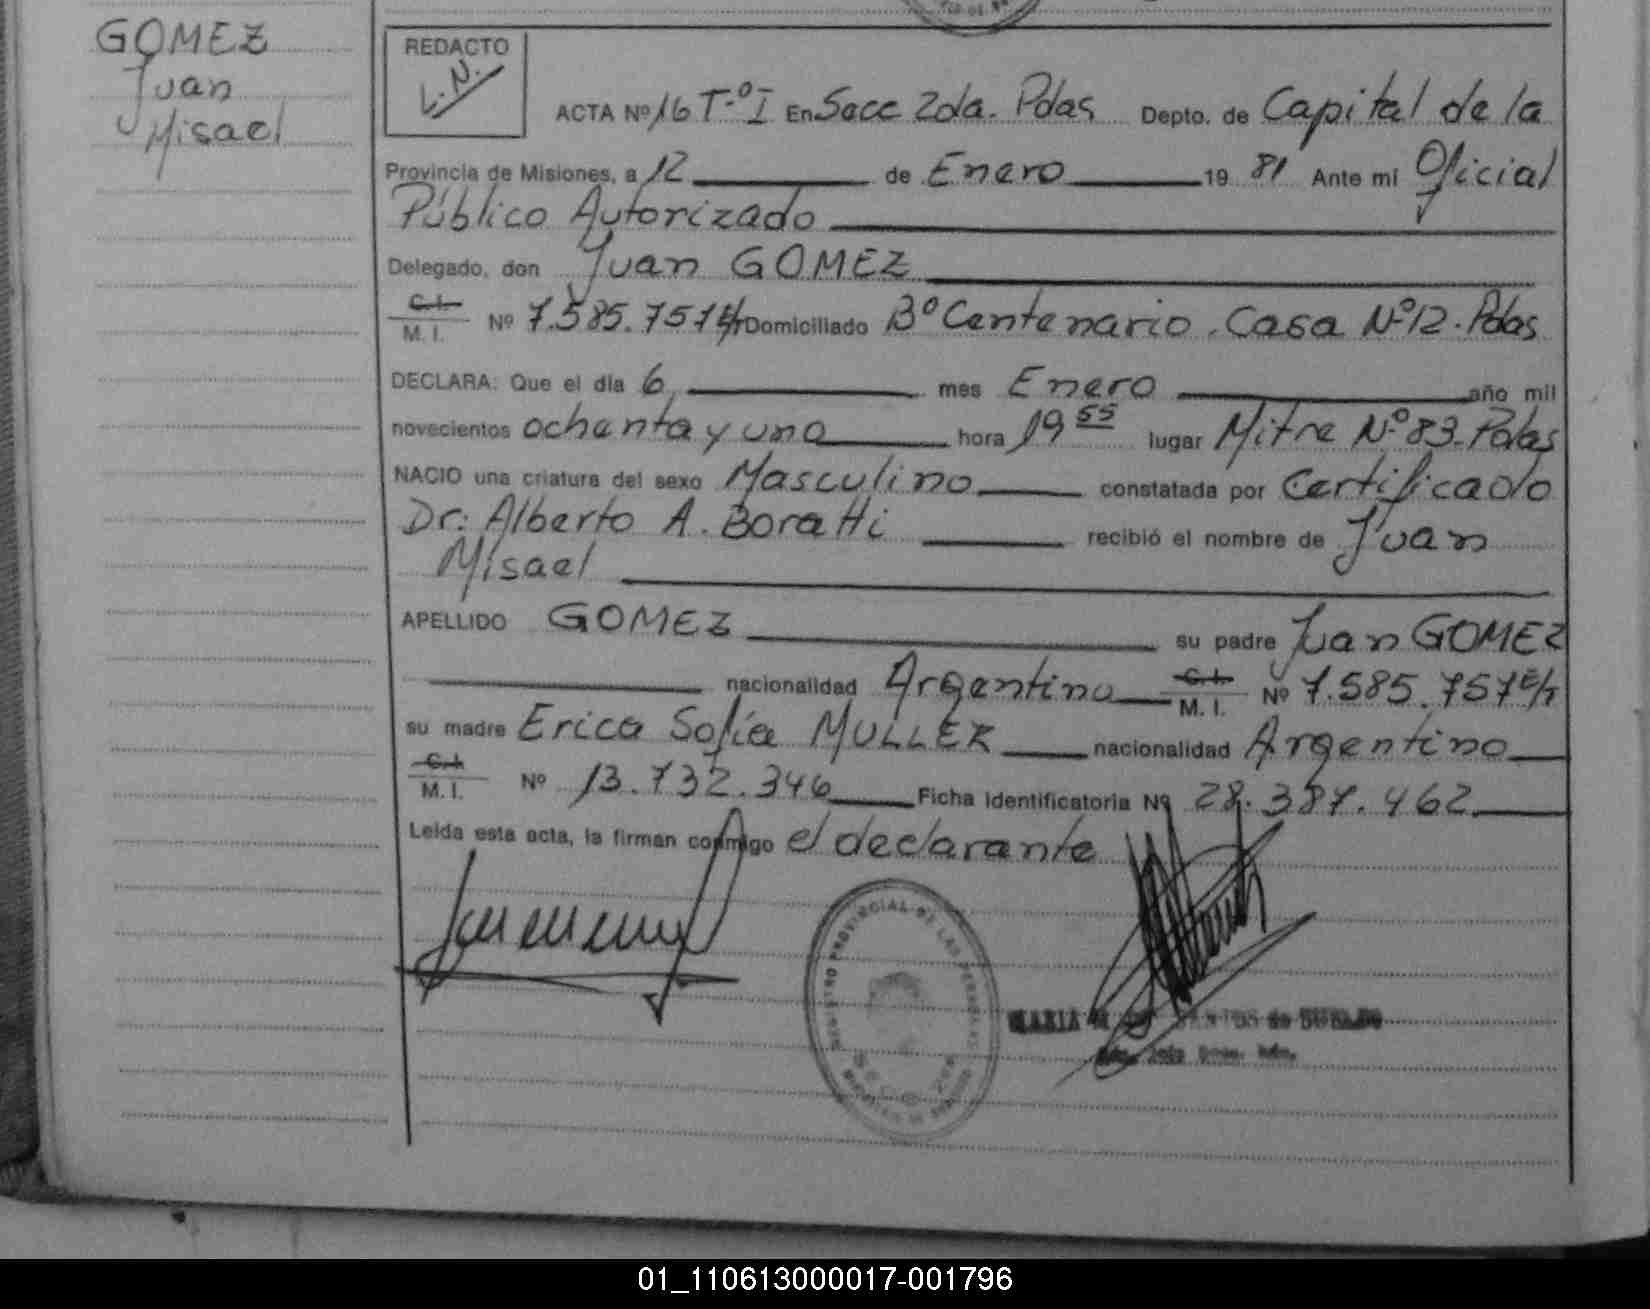 GOMEZ
Juan
Misael
REDACTO
L.N.
ACTA Nº 16 T.º I En Secc 2da. Pdas Depto. de Capital de la
Provincia de Misiones, a 12 de Enero 19 81 Ante mi Oficial
Público Autorizado
Delegado, don Juan GOMEZ
C.I.
M. I. Nº 7.585.757 E/T Domiciliado Bº Centenario. Casa Nº 12. Pdas
DECLARA: Que el día 6 mes Enero año mil
novecientos ochenta y uno hora 19 55 lugar Mitre Nº 83. Pdas
NACIO una criatura del sexo Masculino constatada por Certificado
Dr. Alberto A. Boratti recibió el nombre de Juan
Misael
APELLIDO GOMEZ su padre Juan GOMEZ
nacionalidad Argentino C.I.
M. I. Nº 7.585.757 E/T
su madre Erica Sofía MULLER nacionalidad Argentino
C.I.
M. I. Nº 13.732.346 Ficha Identificatoria Nº 28.387.462
Leída esta acta, la firman conmigo el declarante
REGISTRO PROVINCIAL DE LAS PERSONAS
MARIA
01_110613000017-001796